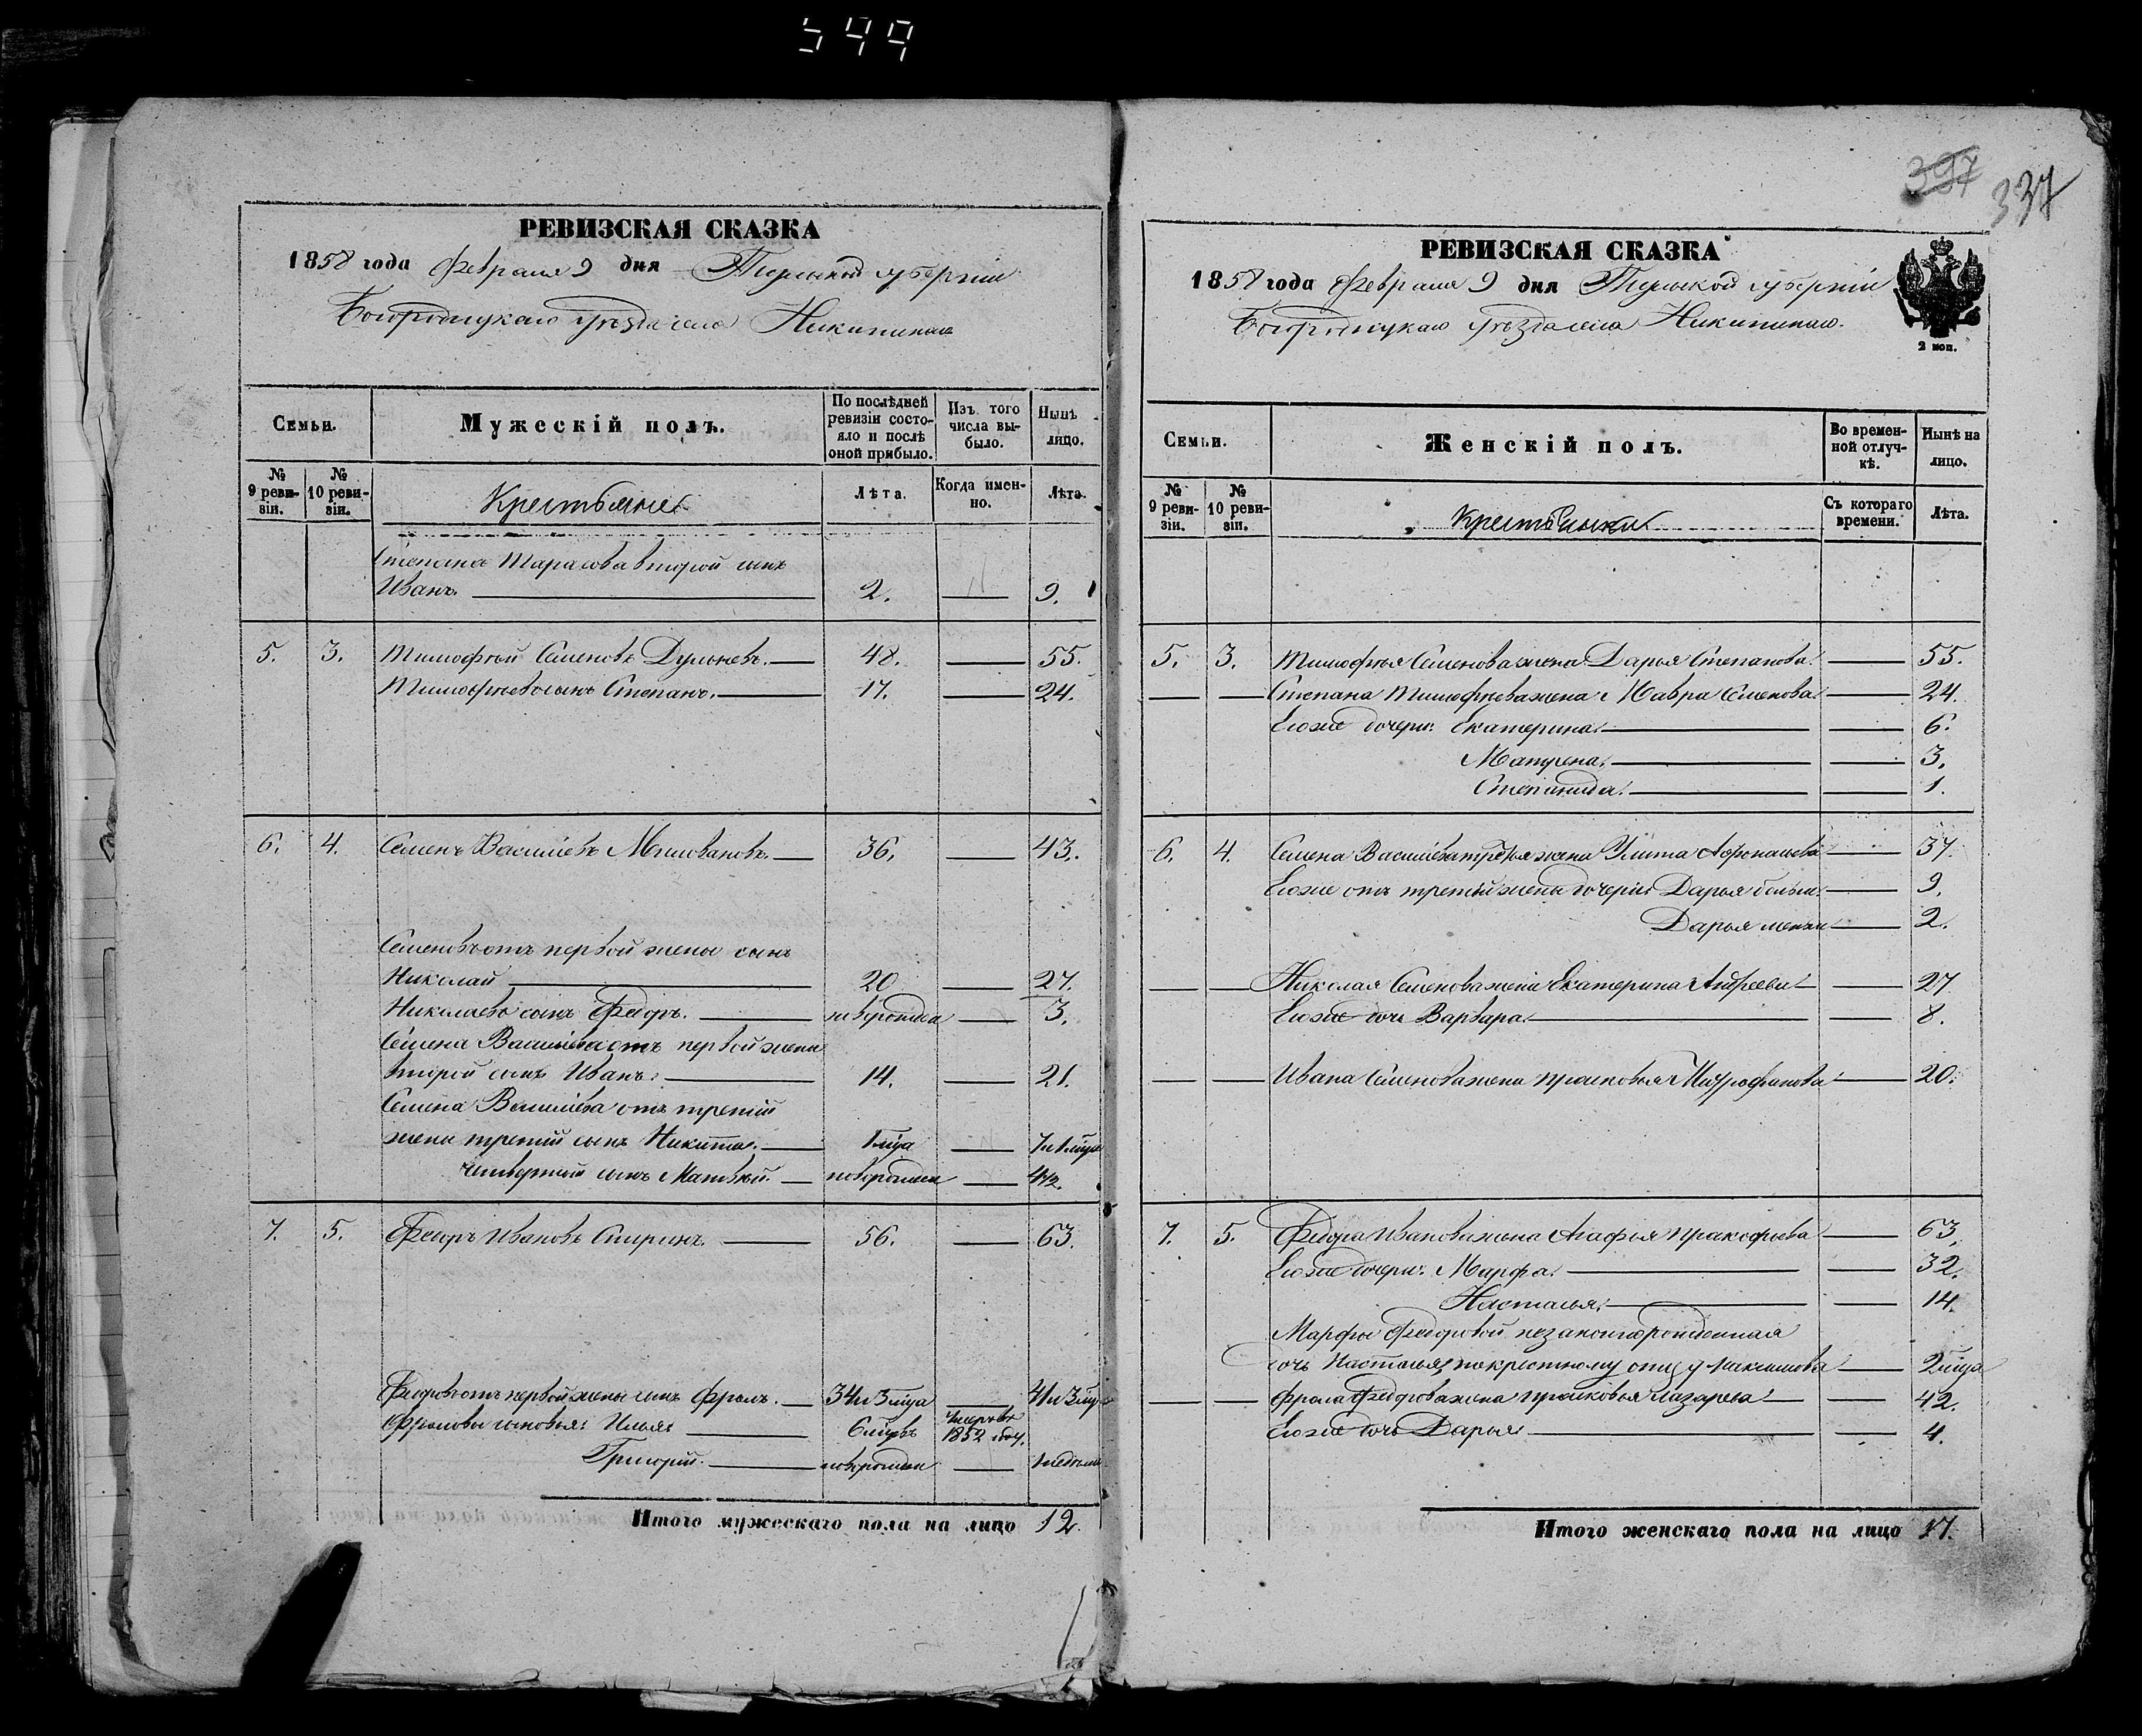 544
РЕВИЗСКАЯ СКАЗКА
1858 года Февраля 9 дня Тульской губерніи
Богородицкаго уѣзда села Никитскаго
Семьи.
Мужескій полъ.
По послѣдней ревизіи состояло и послѣ оной прибыло.
Изъ того числа выбыло.
Нынѣ лицо.
№ 9 ревизіи.
№ 10 ревизіи.
Крестьяне
Лѣта.
Когда именно.
Лѣта.
Степана Тарасова второй сынъ
Иванъ. 2. 9.
5. 3. Тимофѣй Семеновъ Дульневъ. 48. 55.
Тимофѣевъ сынъ Степанъ. 17. 24.
6. 4. Семенъ Васильевъ Миловановъ. 36. 43.
Семеновъ отъ первой жены сынъ
Николай 20 27.
Николаевъ сынъ Федоръ. новорожден 3.
Семена Васильева отъ первой жены
второй сынъ Иванъ. 14. 21.
Семена Васильева отъ третій
жены третій сынъ Никита. 1 мца 7 и 1 мца
четвертый сынъ Матвѣй. новорожден 4 1/2.
7. 5. Федоръ Ивановъ Спиринъ. 56. 63.
Федоровъ отъ первой жены сынъ Фролъ. 34 и 3 мца 41 и 3 мца
Фроловы сыновья: Илья 6 мцвъ умеръ въ 1852 году.
Григорій. новорожден 1 недели
Итого мужескаго пола на лицо 12.
397 337
РЕВИЗСКАЯ СКАЗКА
1858 года Февраля 9 дня Тульской губерніи
Богородицкаго уѣзда села Никитскаго.
2 коп.
Семьи.
Женскій полъ.
Во временной отлучкѣ.
Нынѣ на лицо.
№ 9 ревизіи.
№ 10 ревизіи.
Крестьянки
Съ котораго времени.
Лѣта.
5. 3. Тимофѣя Семенова жена Дарья Степанова. 55.
Степана Тимофѣева жена Мавра Семенова. 24.
Его же дочери: Екатерина. 6.
Матрена. 3.
Степанида. 1.
6. 4. Семена Васильева третья жена Улита Афонасьева 37.
Его же отъ третьи жены дочери Дарья больш. 9.
Дарья меньш 2.
Николая Семенова жена Екатерина Андреева 27
Его же дочь Варвара. 8.
Ивана Семенова жена Прасковья Митрофанова 20.
7. 5. Федора Иванова жена Агафья Пракофьева 63.
Его же дочери: Марфа. 32.
Настасья. 14.
Марфы Федоровой незаконнорожденная
дочь Настасья, по крестному отцу Максимова 2 мца
Фрола Федорова жена Прасковья Лазарева 42.
Его же дочь Дарья 4.
Итого женскаго пола на лицо 17.